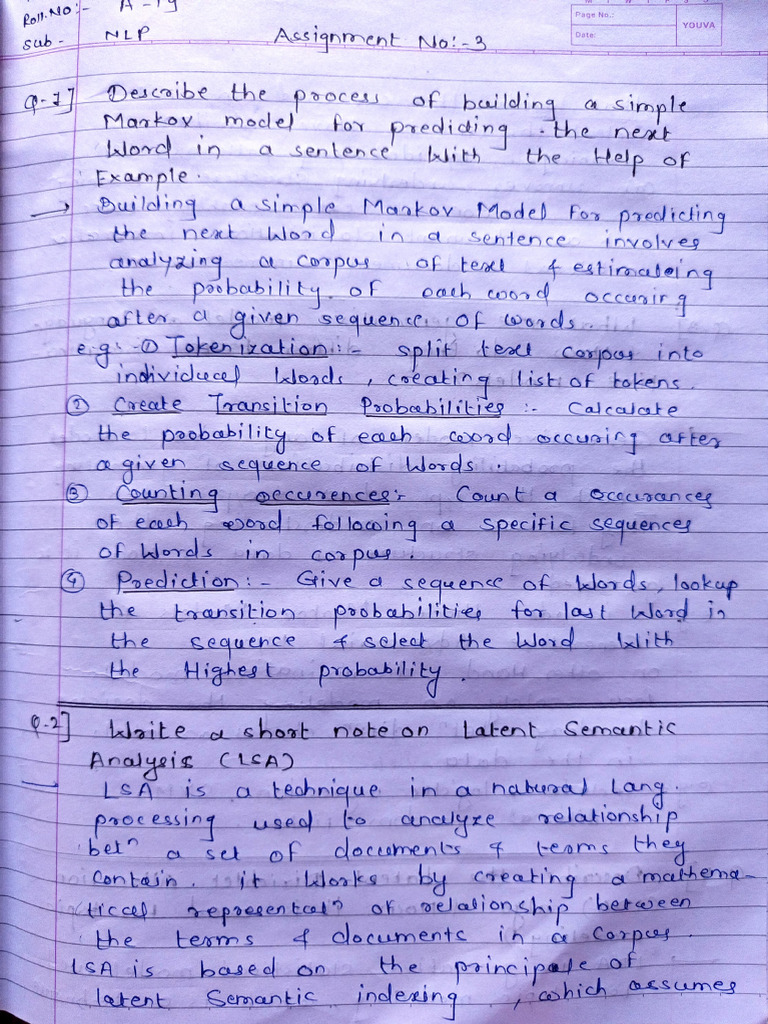 Roll.No:- A-19
Page No.:
YOUVA
Date:
Sub- NLP Assignment No:-3
Q-1] Describe the process of building a simple
Markov model for predicting the next
Word in a sentence With the Help of
Example.
→ Building a simple Markov Model For predicting
the next Word in a sentence involves
analyzing a corpus of text & estimateing
the probability of each word occuring
after a given sequence of words.
e.g:- ① Tokenization:- split text corpus into
individucel Words, creating list of tokens.
② Create Transition Probabilities:- Calcalate
the probability of each word occuring after
a given sequence of Words.
③ Counting occurences:- Count a occurances
of each word following a specific sequences
of Words in corpus.
④ Prediction:- Give a sequence of Words, lookup
the transition probabilities for last Word in
the sequence & select the Word With
the Highest probability.
Q.2] Write a short note on Latent Semantic
Analysis (LSA)
LSA is a technique in a natural Lang.
processing used to analyze relationship
betn a set of documents & terms they
contain. it Works by creating a mathema-
tical representatn of relationship between
the terms & documents in a corpus.
LSA is based on the principale of
latent Semantic indexing, which assumes